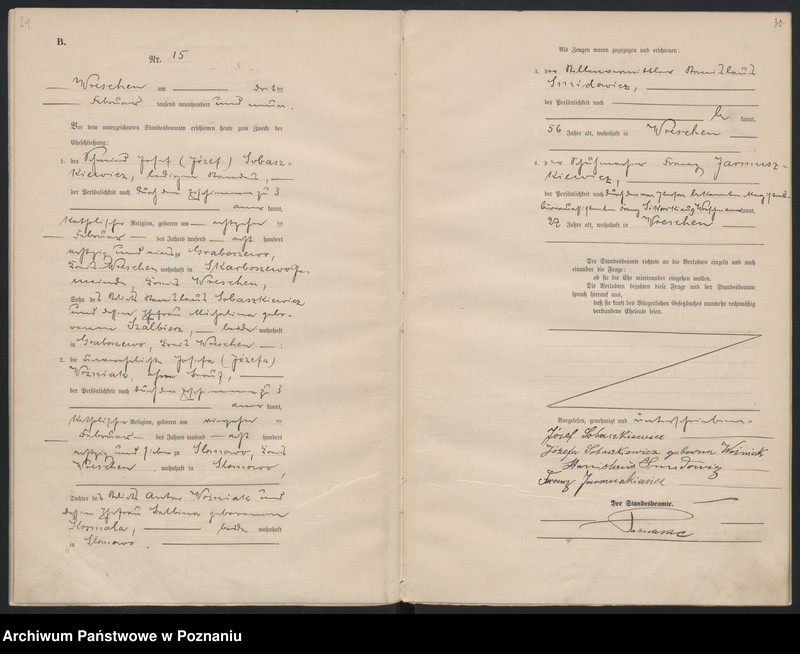 29.
B.
Nr. 15
Wreschen am dritten
Februar tausend neunhundert und neun.
Vor dem unterzeichneten Standesbeamten erschienen heute zum Zwecke der
Eheschließung:
1. der Schmied Josef (Józef) Sobasz-
kiewicz, ledigen Standes,
der Persönlichkeit nach durch den Erschienenen zu 3
anerkannt,
katholischer Religion, geboren am achtzehnten
Februar des Jahres tausend acht hundert
achtzig und eins zu Graboszewo,
Kreis Wreschen, wohnhaft in Skarboszewo Ge-
meinde, Kreis Wreschen,
Sohn des Stanislaus Sobaszkiewicz
und dessen Ehefrau Michalina gebo-
renen Szalbierz, beide wohnhaft
in Graboszewo, Kreis Wreschen :
2. die unverehelichte Josefa (Józefa)
Wozniak, ohne Beruf,
der Persönlichkeit nach durch den Erschienenen zu 3
anerkannt,
katholischer Religion, geboren am
Februar des Jahres tausend acht hundert
achtzig und sieben zu Slomowo, Kreis
Wreschen, wohnhaft in Slomowo,
Tochter des Anton Wozniak und
dessen Ehefrau Balbina geborenen
Kosmala, beide wohnhaft
in Slomowo.
30
Als Zeugen waren zugezogen und erschienen:
3. der Stellenvermittler Stanislaus
Smidowicz,
der Persönlichkeit nach
be kannt,
56 Jahre alt, wohnhaft in Wreschen
4. der Schuhmacher Franz Jarmusz-
kiewicz,
der Persönlichkeit nach durch den
Franz anerkannt,
27 Jahre alt, wohnhaft in Wreschen
Der Standesbeamte richtete an die Verlobten einzeln und nach
einander die Frage:
ob sie die Ehe miteinander eingehen wollen.
Die Verlobten bejahten diese Frage und der Standesbeamte
sprach hierauf aus,
daß sie kraft des Bürgerlichen Gesetzbuchs nunmehr rechtmäßig
verbundene Eheleute seien.
Vorgelesen, genehmigt und unterschrieben
Józef Sobaszkiewicz
Józefa Sobaszkiewicz geborene Woźniak
Stanislaus Smidowicz
Franz Jarmuszkiewicz
Der Standesbeamte.
Archiwum Państwowe w Poznaniu